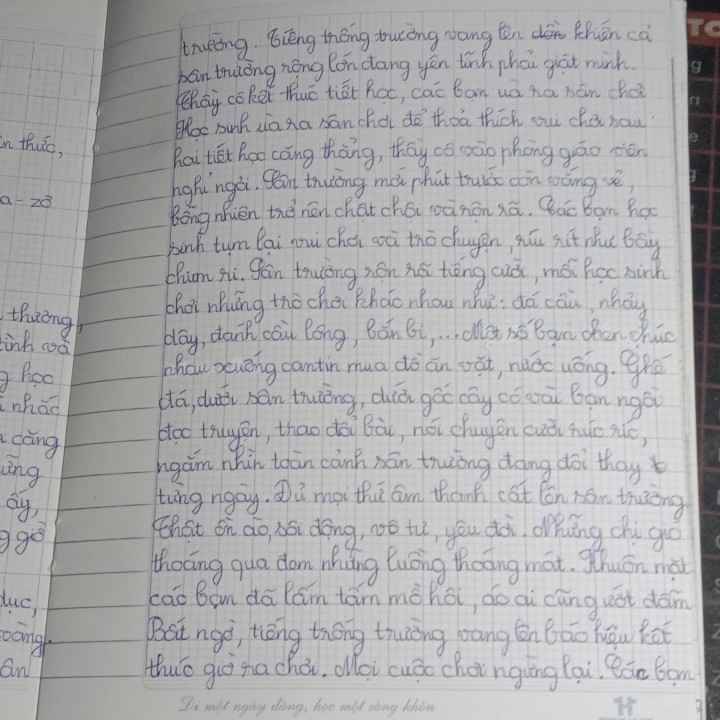 trường. Tiếng trống trường vang lên dồn khiến cả
sân trường rộng lớn đang yên tĩnh phải giật mình.
Thầy cô kết thúc tiết học, các bạn ùa ra sân chơi
Học sinh ùa ra sân chơi để thoả thích vui chơi sau
hai tiết học căng thẳng, thầy cô vào phòng giáo viên
nghỉ ngơi. Sân trường mới phút trước còn vắng vẻ,
bỗng nhiên trở nên chật chội và rộn rã. Các bạn học
sinh tụm lại vui chơi và trò chuyện, ríu rít như bầy
chim ri. Sân trường rộn rã tiếng cười, mỗi học sinh
chơi những trò chơi khác nhau như: đá cầu, nhảy
dây, đánh cầu lông, bắn bi,... Một số bạn chen chúc
nhau xuống cantin mua đồ ăn vặt, nước uống. Ghế
đá, dưới sân trường, dưới gốc cây có vài bạn ngồi
đọc truyện, trao đổi bài, nói chuyện cười rúc ríc,
ngắm nhìn toàn cảnh sân trường đang đổi thay
từng ngày. Đủ mọi thứ âm thanh cất lên sân trường
thật ồn ào, sôi động, vô tư, yêu đời. Những chị gió
thoáng qua đem những luồng thoáng mát. Khuôn mặt
các bạn đã lấm tấm mồ hôi, áo ai cũng ướt đẫm
Bất ngờ, tiếng trống trường vang lên báo hiệu kết
thúc giờ ra chơi. Mọi cuộc chơi ngừng lại. Các bạn
Đi một ngày đàng, học một sàng khôn
n thức,
a - zờ
thương,
tình và
g học
nhắc
căng
ừng
ấy,
g gờ
dục,
ân
TC